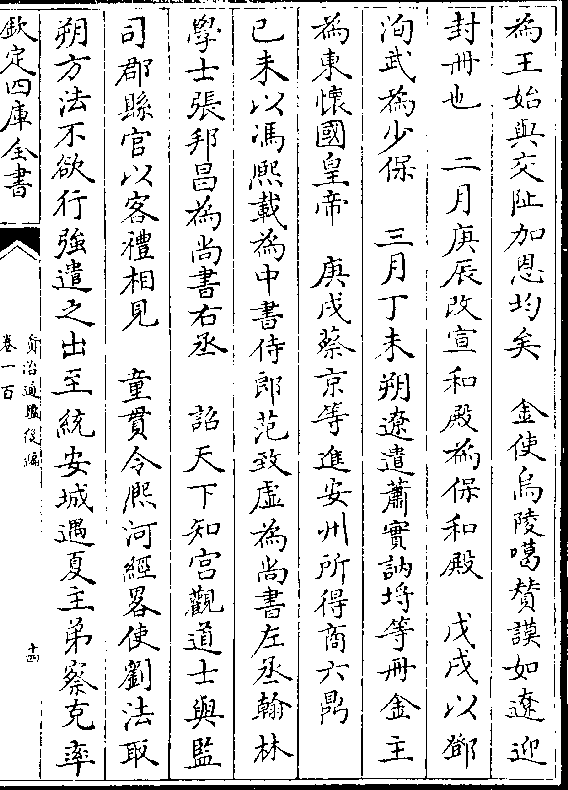 為王始與交阯加恩均矣　金使烏陵噶賛謨如遼迎
封冊也　二月庚辰改宣和殿為保和殿　戊戌以鄧
洵武為少保　三月丁未朔遼遣蕭實訥埒等冊金主
為東懷國皇帝　庚戌蔡京等進安州所得商六鼎
已未以馮熈載為中書侍郎范致虛為尚書左丞翰林
學士張邦昌為尚書右丞　詔天下知宮觀道士與監
司郡縣官以客禮相見　童貫令熈河經畧使劉法取
朔方法不欲行強遣之出至統安城遇夏主弟察克率
欽定四庫全書
資治通鑑後編
卷一百
十四